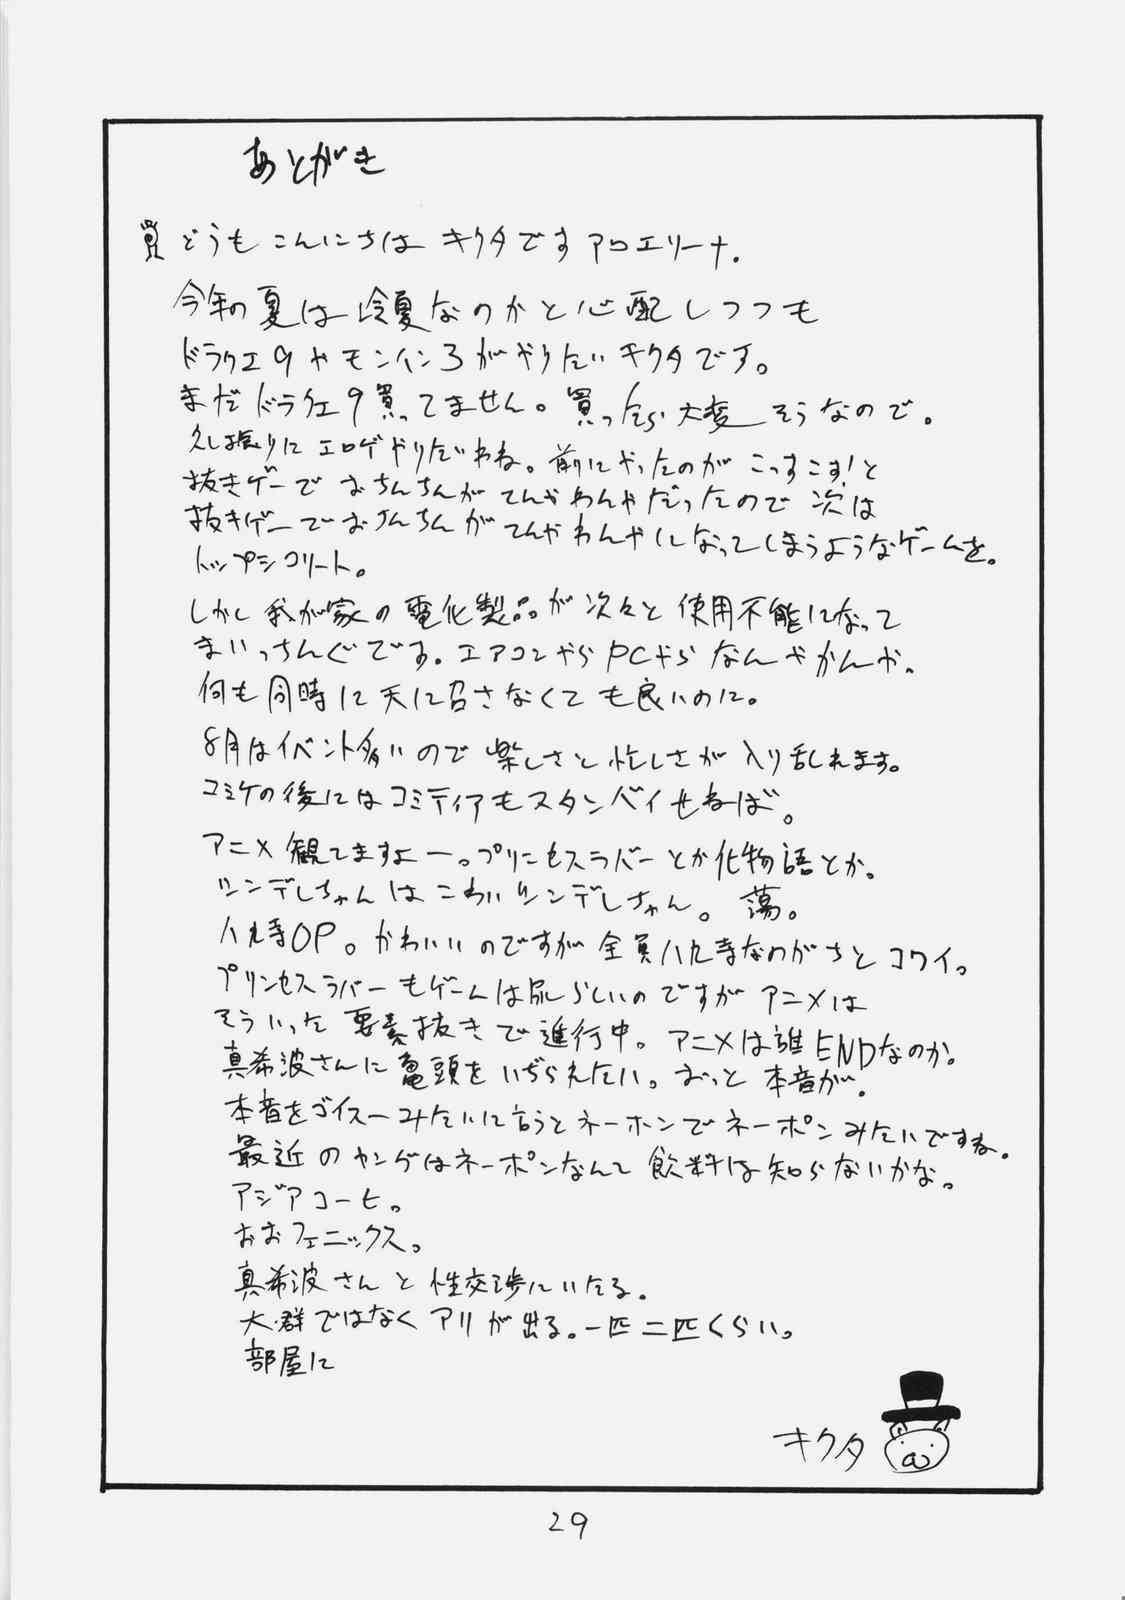 あとがき
どうもこんにちは キクタです アロエリーナ.
今年の夏は冷夏なのかと心配しつつも
ドラクエ9やモンハン3がやりたいキクタです。
まだドラクエ9買ってません。買ったら大変そうなので。
久し振りにエロゲやりたいわね。前にやったのが こっすこす!と
抜きゲーで おちんちんが てんやわんやだったので 次は
抜きゲーでおちんちんが てんやわんやになってしまうようなゲームを。
トップシコリート。
しかし 我が家の電化製品が次々と使用不能になって
まいっちんぐです。エアコンやら PCやら なんやかんや。
何も同時に天に召さなくても良いのに。
8月はイベント多いので 楽しさと忙しさが入り乱れます。
コミケの後にはコミティアもスタンバイせねば。
アニメ観てますよー。プリンセスラバーとか化物語とか。
ツンデレちゃんはこわいツンデレちゃん。蕩。
八九寺OP。かわいいのですが 全員八九寺なのがちとコワイ。
プリンセスラバーもゲームは尻らしいのですが アニメは
そういった要素抜きで進行中。アニメは誰ENDなのか。
真希波さんに亀頭をいぢられたい。おっと本音が。
本音をゴイスーみたいに言うとネーホンでネーポンみたいですね。
最近のヤングはネーポンなんて飲料は知らないかな。
アジアコーヒ。
おおフェニックス。
真希波さんと性交渉にいたる。
大群ではなくアリが出る。一匹二匹くらい。
部屋に
キクタ
29